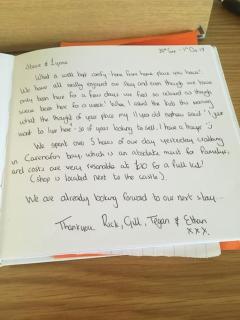 30th Sept - 1st Oct 17
Steve & Lynne
What a well but comfy home from home place you have!
We have all really enjoyed our stay and even though we have
only been here for a few days we feel so relaxed as though
we've been here for a week! When I asked the kids this morning
what the thought of your place my 11 year old nephew said 'I just
want to live here' - so if your looking to sell I have a buyer :)
We spent over 3 hours of our day yesterday crabbing
in Caernarfon bay which is an absolute must for families,
and costs are very reasonable at £10 for a full kit!
(shop is located next to the castle).
We are already looking forward to our next stay...
Thankyou Rick, Gill, Tegan & Ethan
x x x.